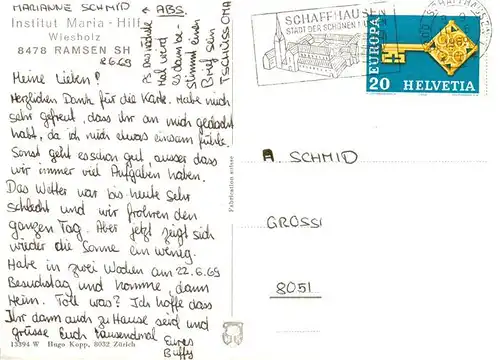 MARIANNE SCHMID
Institut Maria-Hilf
Wiesholz
8478 RAMSEN SH
8.6.69
Meine Lieben!
Herzlichen Dank für die Karte. Habe mich
sehr gefreut, dass ihr an mich gedacht
habt, da ich mich etwas einsam fühle.
Sonst geht es schon gut, ausser dass
wir immer viel Aufgaben haben.
Das Wetter war bis heute sehr
schlecht und wir frohren den
ganzen Tag. Aber jetzt zeigt sich
wieder die Sonne ein wenig.
Habe in zwei Wochen am 22.6.69
Besuchstag und komme dann
Heim. Toll was? Ich hoffe dass
Ihr dann auch zu Hause seid und
grüsse Euch tausendmal
Eures
Buffy
ABS.
Das nächste
Mal werd
es dann be-
stimmt einen
Brief sein
TSCHÜSS CIAO
13394 W Hugo Kopp, 8032 Zürich
SCHAFFHAUSEN
STADT DER SCHÖNEN
EUROPA
20 HELVETIA
A. SCHMID
GROSSI
8051